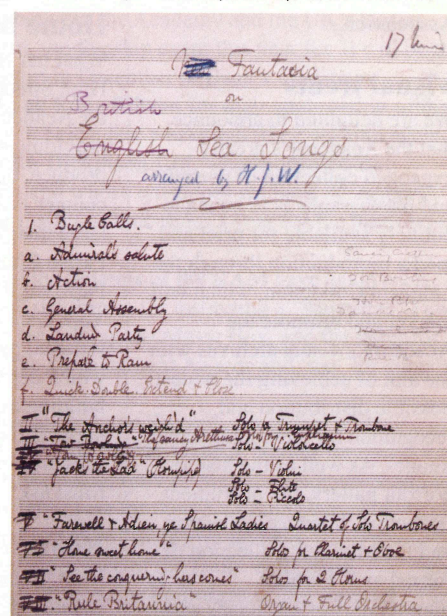 17 min
Fantasia
on
British
English Sea Songs
arranged by H.J.W.
1. Bugle Calls.
a. Admiral's salute
b. Action
c. General Assembly
d. Landing Party
e. Prepare to Ram
f. Quick, Double, Extend & Close
II. "The Anchor's weigh'd" Solo for Trumpet & Trombone
III "The saucy Arethusa" Solo for Euphonium
"Tom Bowling" Solo - Violoncello
"Jack's the Lad" (Hornpipe) Solo - Violin
Solo - Flute
Solo - Piccolo
"Farewell & Adieu, ye Spanish Ladies Quartet of Solo Trombones
"Home sweet home" Solos for Clarinet & Oboe
"See the conquering hero comes" Solos for 2 Horns
"Rule Britannia" Organ & Full Orchestra